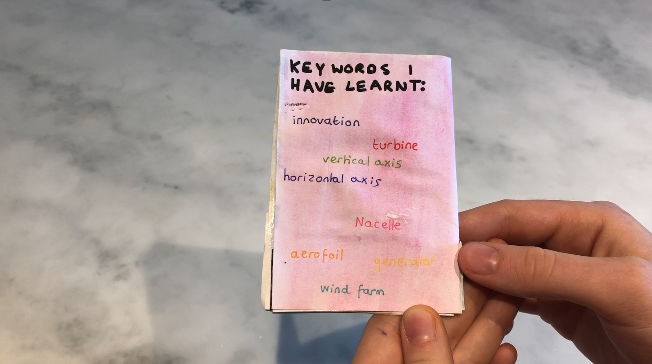 KEY WORDS I
HAVE LEARNT:
innovation
turbine
vertical axis
horizontal axis
Nacelle
aerofoil generator
wind farm